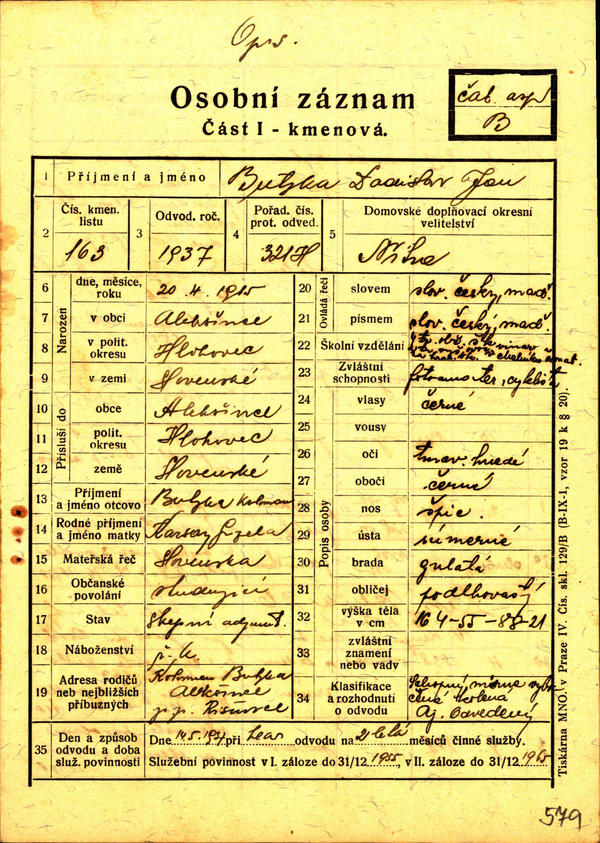 Opis.
Osobní záznam
Část I - kmenová.
čáb. asp
B
1 Příjmení a jméno Butzka Ladislav Jan
2 Čís. kmen. listu 163
3 Odvod. roč. 1937
4 Pořad. čís. prot. odved. 321H
5 Domovské doplňovací okresní velitelství Nitra
Narozen
6 dne, měsíce, roku 20. 4. 1915
7 v obci Alekšince
8 v polit. okresu Hlohovec
9 v zemi Slovenské
Přísluší do
10 obce Alekšince
11 polit. okresu Hlohovec
12 země Slovenské
13 Příjmení a jméno otcovo Butzka Koloman
14 Rodné příjmení a jméno matky Gizela
15 Mateřská řeč Slovenska
16 Občanské povolání studující
17 Stav
18 Náboženství ř. k.
19 Adresa rodičů neb nejbližších příbuzných Koloman Butzka
p. p. Rišňovce
Ovládá řeči
20 slovem slov. český, maď.
21 písmem slov. český, maď.
22 Školní vzdělání
23 Zvláštní schopnosti
Popis osoby
24 vlasy černé
25 vousy
26 oči tmav. hnedé
27 obočí černé
28 nos špic.
29 ústa súmerné
30 brada gulatá
31 obličej podlhovastý
32 výška těla v cm 164-55-88-21
33 zvláštní znamení nebo vady
34 Klasifikace a rozhodnutí o odvodu Schopný,
Aj. Odvedený
35 Den a způsob odvodu a doba služ. povinnosti
Dne 14.5.1937 při odvodu na 2 letá měsíců činné služby.
Služební povinnost v I. záloze do 31/12 1955, v II. záloze do 31/12 1965
Tiskárna MNO. v Praze IV. Čís. skl. 129/B (B-IX-1, vzor 19 k § 20).
579